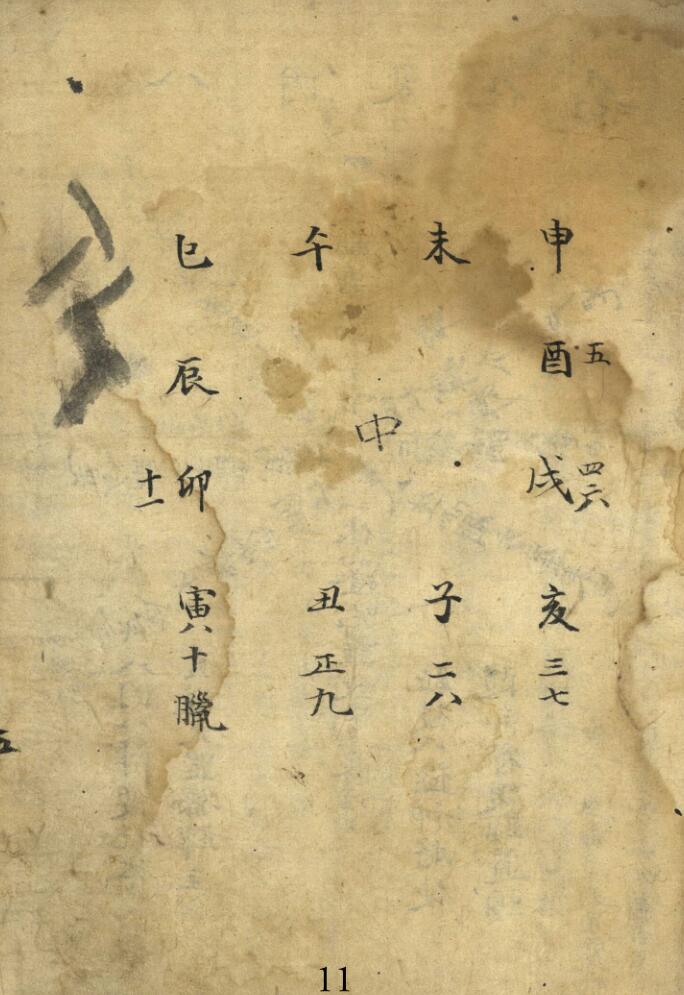 五
四六
申酉戌亥三七
未子二八
中
午丑正九
巳辰卯寅十臘
十一
11